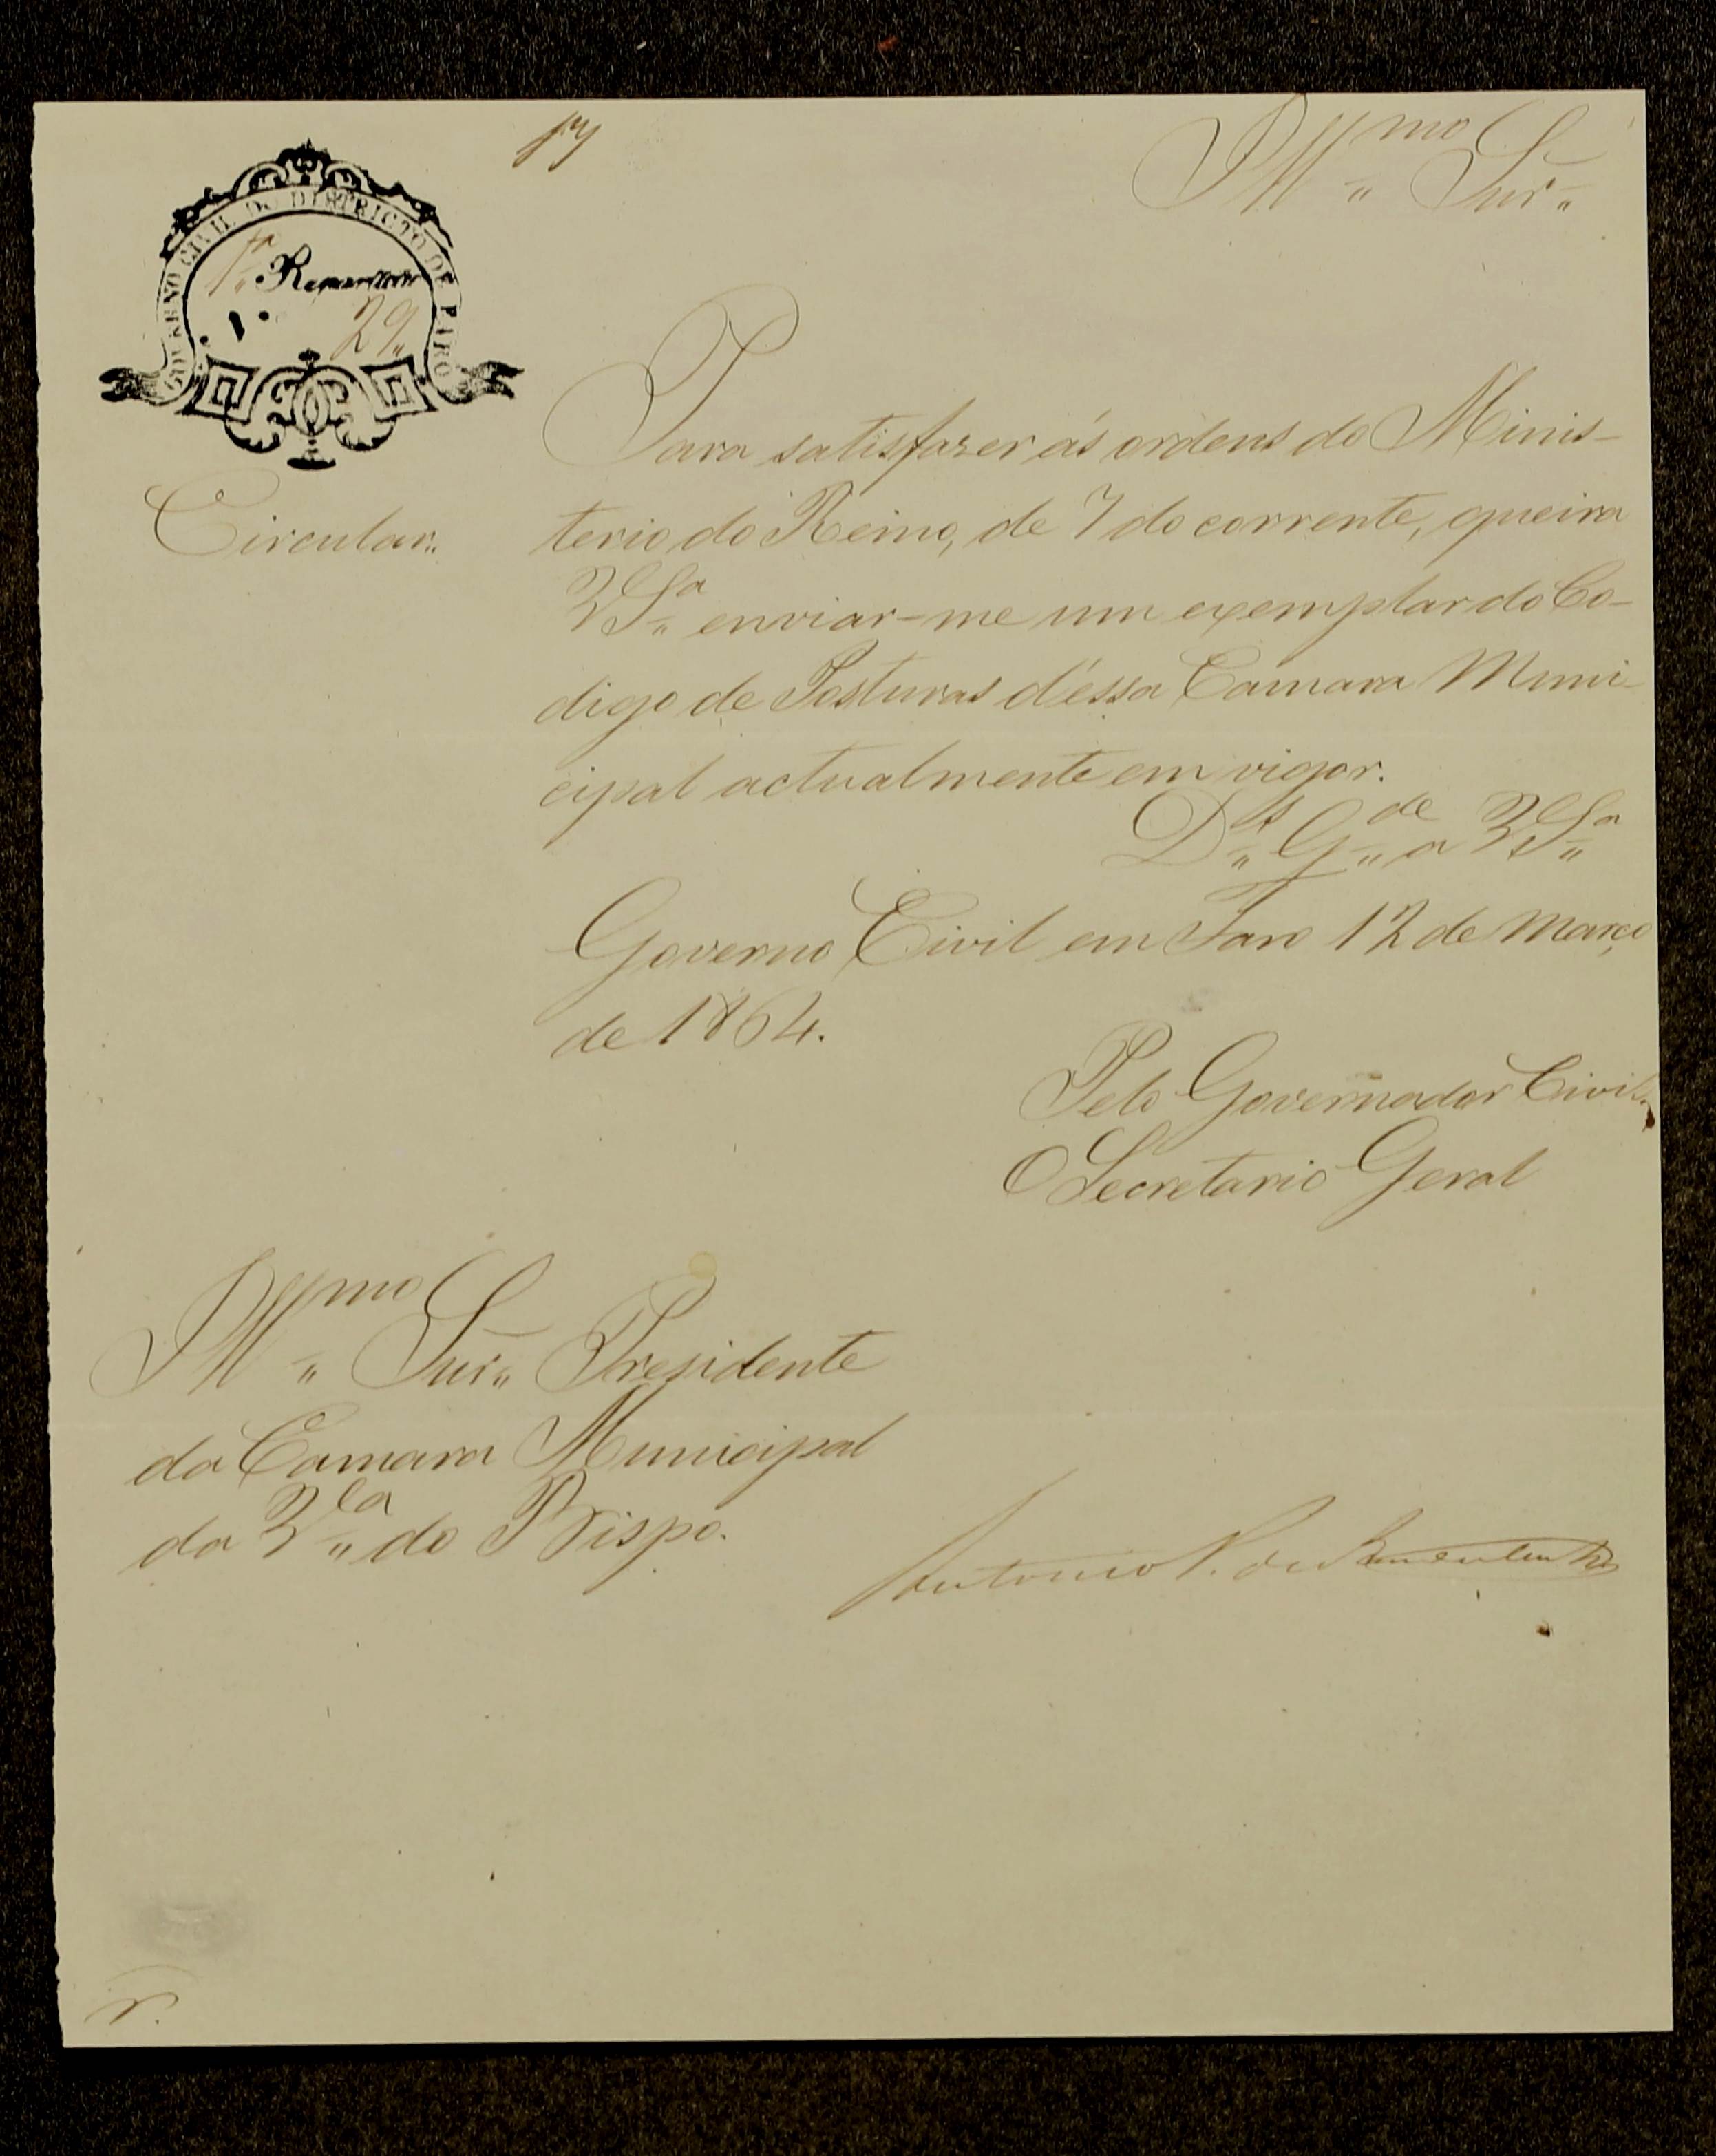 17
Illmo Snr.
GOVERNO CIVIL DO DISTRICTO DE FARO
1ª Repartição
N.º 29
Circular.
Para satisfazer ás ordens do Minis-
terio do Reino, de 7 do corrente, queira
V.Sª enviar-me um exemplar do Co-
digo de Posturas d'essa Camara Muni-
cipal actualmente em vigor.
Ds Gde a V.Sª
Governo Civil em Faro 12 de Março
de 1864.
Pelo Governador Civil.
O Secretario Geral
Illmo Snr. Presidente
da Camara Municipal
da Vla do Bispo.
Antonio